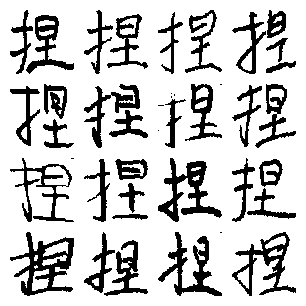 捏捏捏捏
捏捏捏捏
捏捏捏捏
捏捏捏捏